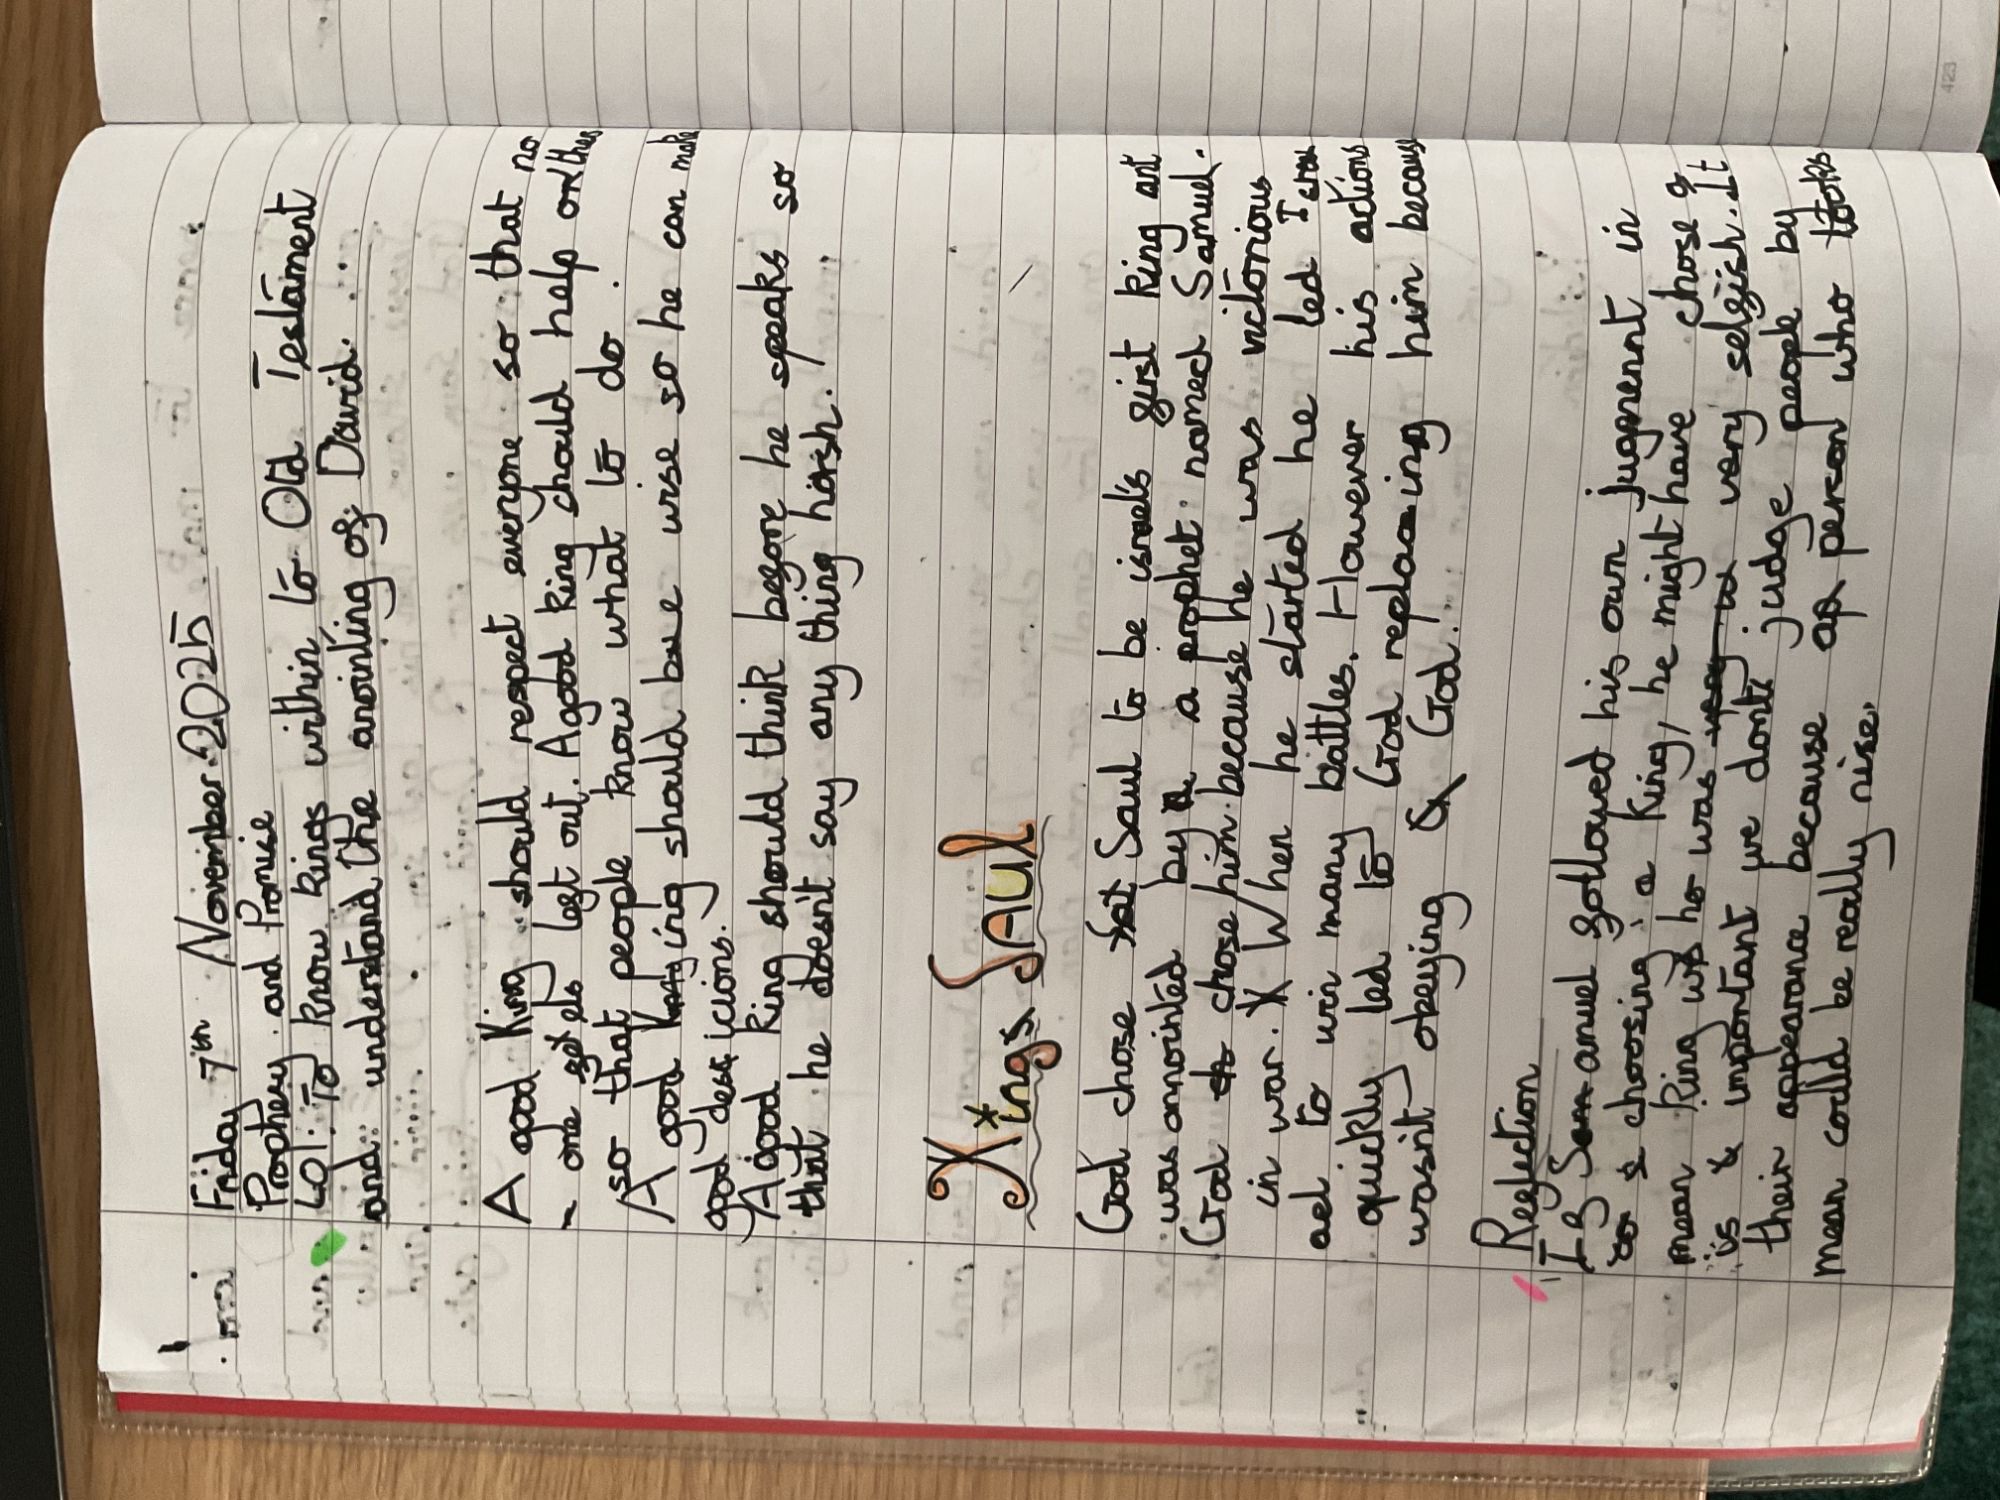 Friday 7th November 2025
Prophecy and Promise
LO1: To know kings within to Old Testament
and understand the anointing of David.
A good King should respect everyone so that no
one gets left out. A good king should help others
so that people know what to do.
A good King should be wise so he can make
good desicions.
A good king should think before he speaks so
that he doesn't say any thing harsh.
Kings SAUL
God chose Saul to be isreal's first king and
was annointed by a prophet named Samuel.
God chose him because he was victorious
in war. When he started he led Isra
ael to win many battles. However his actions
quickly led to God replaceing him because
wasn't obeying God.
Reflection
If Samuel followed his our jugement in
choosing a king, he might have chose a
mean king who was very selfish. It
is important we don't judge people by
their appearance because a person who looks
mean could be really nise.
423